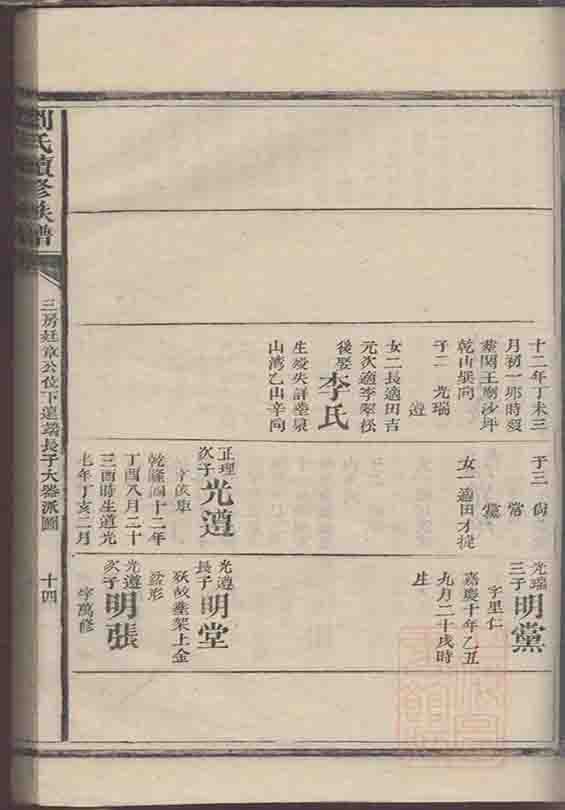 劉氏續修族譜
三房廷章公位下遠端長子大器派圖
十四
十二年丁未三
月初一卯時歿
葬関王廟沙坪
乾山巽向
子二 光瑞
遵
女二長適田吉
元次適李翠松
後娶 李氏
生歿失詳葬泉
山湾乙山辛向
子三 尙
常
黨
女一適田才捷
正理
次子 光遵
字依車
乾隆四十二年
丁酉八月二十
三酉時生道光
七年丁亥二月
光瑞
三子 明黨
字里仁
嘉慶十年乙丑
九月二十戌時
生
光遵
長子 明堂
歿故葬架上金
盆形
光遵
次子 明張
字萬修